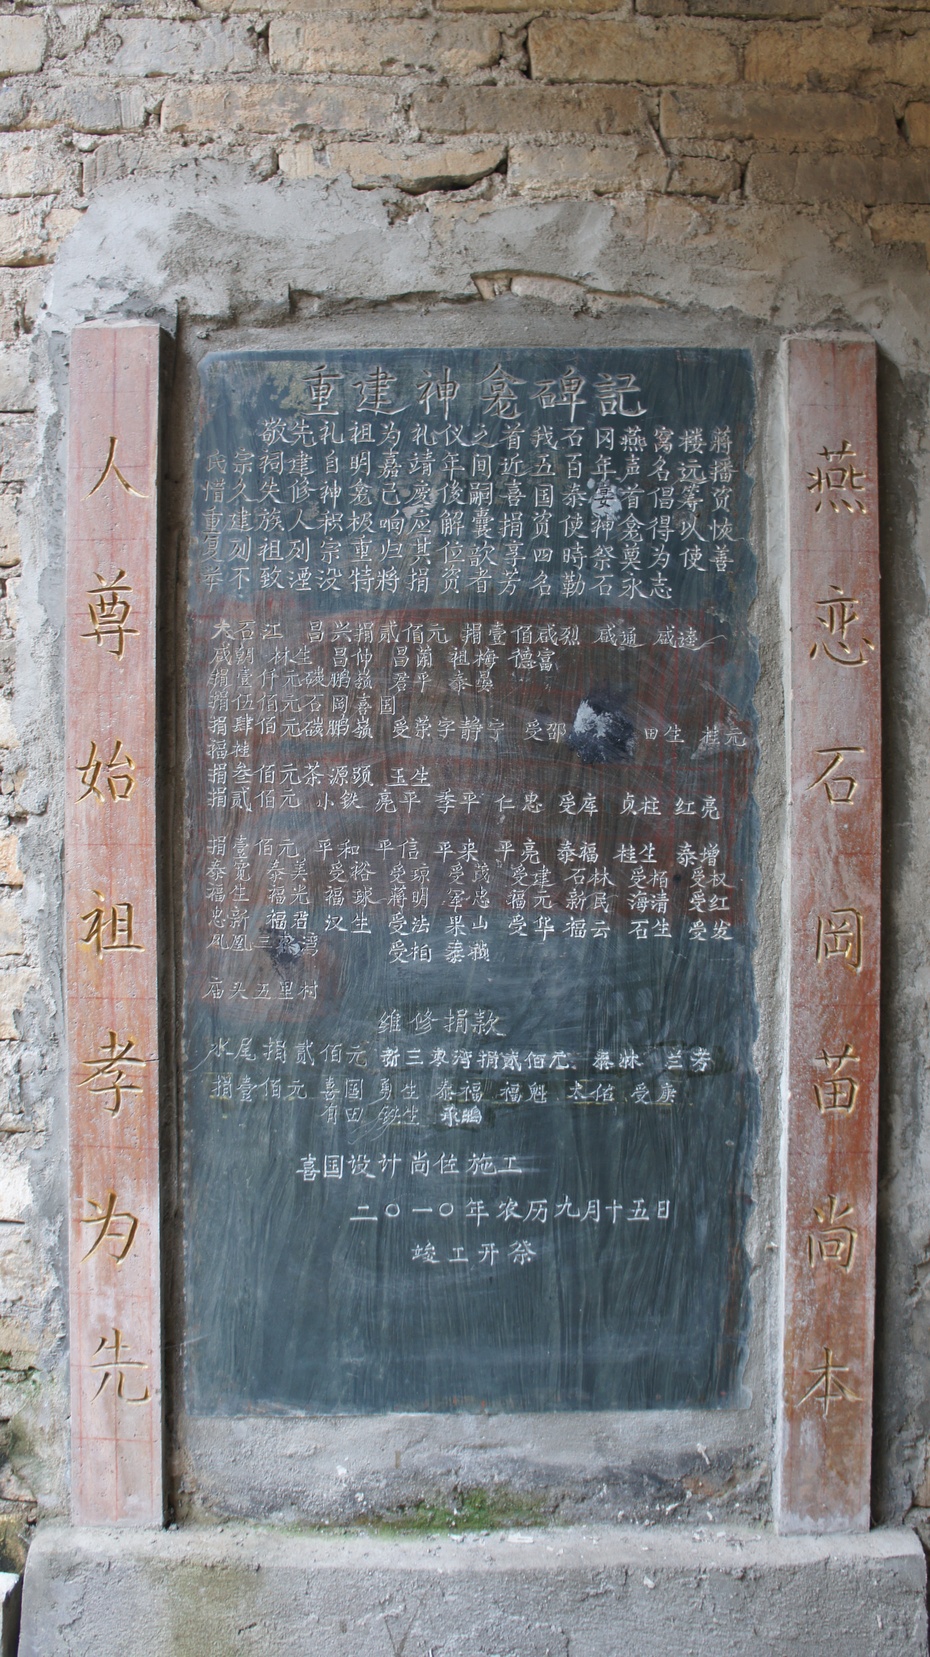 重建神龛碑記
敬先礼祖为礼仪之首我石冈燕窝楼蒋
氏宗祠建自明嘉靖年间近五百年声名远播
惜久失修神龛己废後嗣喜国泰晏首倡筹资
重建族人积极响应解囊捐资使神龛得以恢
复列祖列宗重归其位歆享四時祭奠为使善
举不致湮没特将捐资者芳名勒石永志
大石江 昌兴捐贰佰元 捐壹佰咸烈 咸通 咸逵
咸朝 林生 昌仲 昌蕭 祖梅 德富
捐壹仟元磁鹏嶷 君平 泰晏
捐伍佰元石岡喜国
捐肆佰元磁鹏嶷 受荣字静宇 受邵 田生 桂元
福桂
捐叁佰元茶源頭 玉生
捐贰佰元 小铁 亮平 季平 仁忠 受库 贞柱 红亮
捐壹佰元 平和 平信 平来 平亮 泰福 桂生 泰增
泰宽 泰美 受裕 受琼 受茂 受建 石林 受栢 受权
福生 福光 福球 蒋明 军忠 福元 新民 海清 受红
忠新 福君 汉生 受法 果山 受华 福云 石生 受发
凤凰三枣湾 受柏 泰巍
庙头五里村
维修捐款
水尾捐贰佰元 新三枣湾捐贰佰元 泰林 兰芳
捐壹佰元 喜国 勇生 泰福 福魁 太佑 受庚
有田 铁生 承鹏
喜国设计尚佐施工
二〇一〇年农历九月十五日
竣工开祭
燕恋石岡苗尚本
人尊始祖孝为先